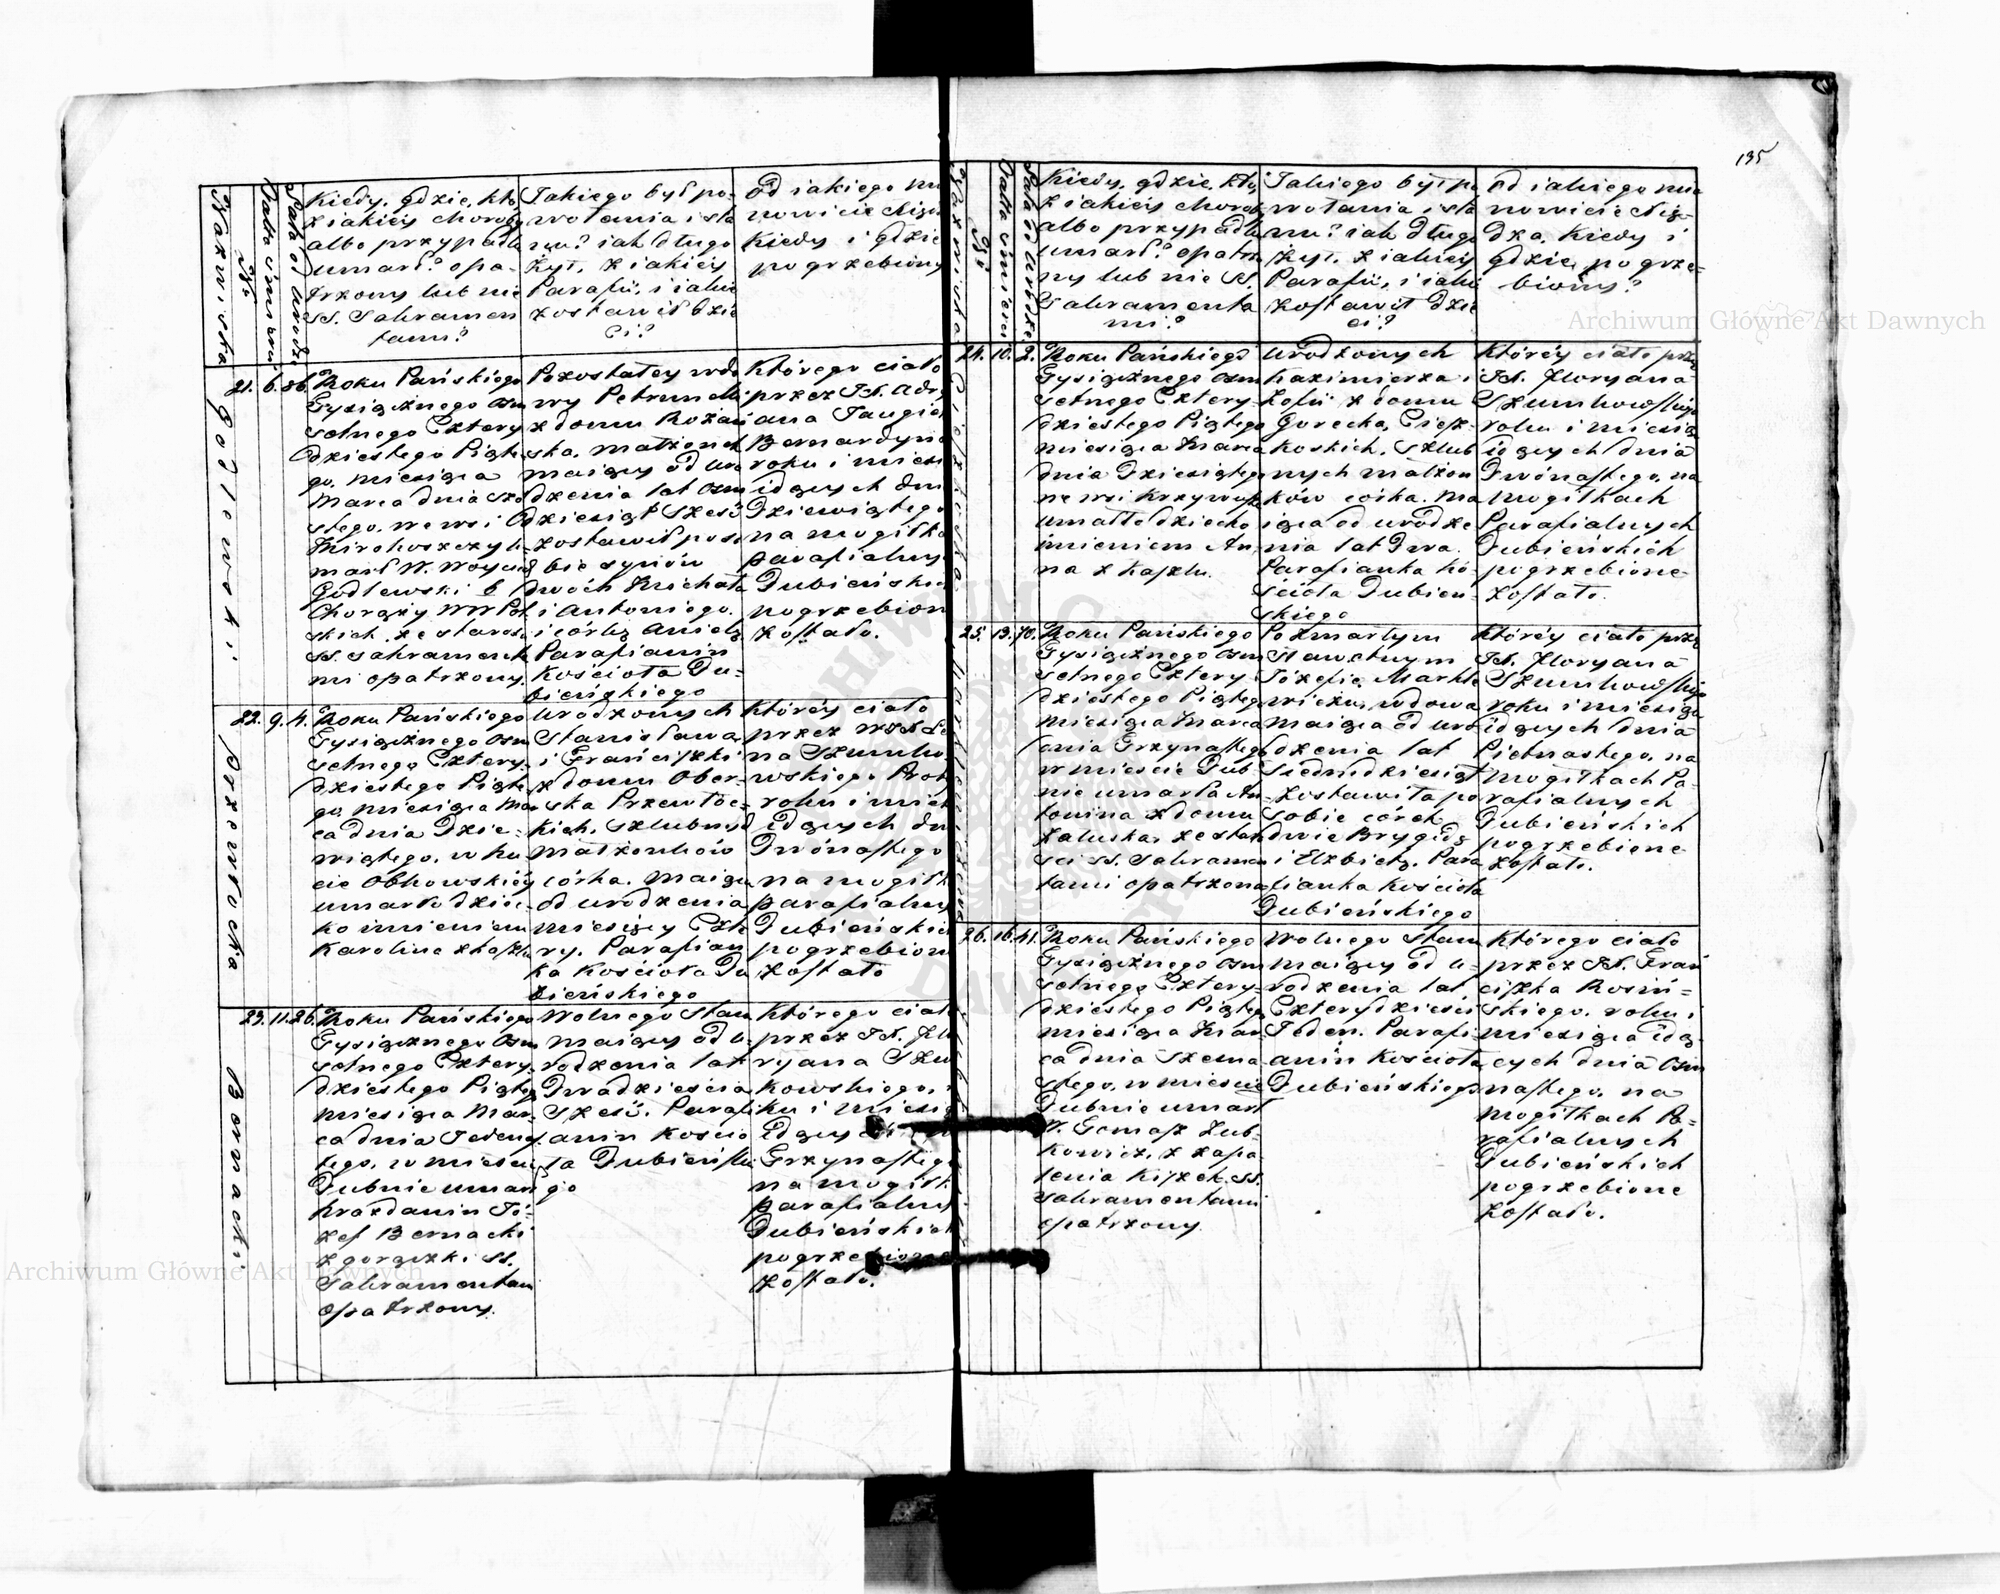 135
Nazwiska
No
Datta śmierci
Lata od urodze
Kiedy, gdzie, kto,
z iakiéy choroby
albo przypadku
umarł? opa-
trzony lub nie
SS. Sakramen
tami?
Jakiego był po-
wołania i sta
nu? iak długo
żył, z iakiéy
Parafii, i iakie
zostawił dzie
ci?
Od iakiego mia
nowicie Xięd
Kiedy i gdzie
pogrzebiony
Godlewski.
21. 6. 86.
Roku Pańskiego
Tysiącznego Osm
setnego Cztery
dziestego Piąte
go, miesiąca
Marca dnia Szó
stego, we wsi
marł W. Woyciech
Godlewski b
Chorąży WW Pol
skich, ze starości
SS. Sakramenta
mi opatrzony.
Pozostałey wdo
wy Petrunelli
z domu
ska, małżonek
maiący od uro
dzenia lat Osm
dziesiąt Sześć
zostawił po so
bie synów
dwóch Michała
i Antoniego.
i córkę Anielę
Parafianin
Kościoła Du-
bieńskiego
Którego ciało
przez JX. Adry
ana
Bernardyna
roku i miesi
idących dnia
Dziewiątego
na mogiłka
parafialnyc
Dubieńskich
pogrzebion
zostało.
Przewłocka
22. 9. 4.
Roku Pańskiego
Tysiącznego Osm
setnego Cztery-
dziestego Piąte
go, miesiąca Mar
ca dnia Dzie-
wiątego, w fu
cie Obhowskiéy
umarło dziec-
ko imieniem
Karolina z kaszlu
Urodzonych
Stanisława
i Franciszki
z domu Ober-
ska Przewłoc-
kich, szlubnych
małżonków
córka. Maiąca
od urodzenia
miesięcy Czte
ry. Parafian
ka Kościoła Du
bieńskiego
Któréy ciało
przez
na Szumko
wskiego Prob
roku i miesi
idących dn
Dwónastego
na mogiłk
parafialny
Dubieńskich
pogrzebion
zostało
Bernacki.
23. 11. 26.
Roku Pańskiego
Tysiącznego Osm
setnego Cztery-
dziestego Piątego
miesiąca Mar
ca dnia Jedenas
tego, w mieście
Dubnie umarł
Hrażdanin Jó-
zef Bernacki
z gorączki SS.
Sakramentam
opatrzony.
Wolnego stanu
maiący od u-
rodzenia lat
Dwadzieścia
Sześć. Parafi
anin Kościo
ła Dubieńskie
go
Którego ciało
przez JX. Flo
ryana Szum
kowskiego, ro
ku i miesią
idących
Trzynastego
na mogiłk
parafialny
Dubieńskich
pogrzebione
zostało.
Nazwiska
No
Datta śmierci
Lata od urodze
Kiedy, gdzie, kto,
z iakiéy chorob
albo przypadku
umarł? opatrzo
ny lub nie SS.
Sakramenta
mi?
Jakiego był po
wołania i sta
nu? iak długo
żył, z iakiéy
Parafii, i iakie
zostawił dzie
ci?
Od iakiego mia
nowicie Xię-
dza, Kiedy i
gdzie, pogrze-
biony?
24. 10. 2.
Roku Pańskiego
Tysiącznego Osm
setnego Cztery
dziestego Piątego
miesiąca Marca
dnia Dziesiątego
we wsi
umarło dziecko
imieniem An
na z kaszlu.
Urodzonych
Kazimierza i
Zofii z domu
Gorecka, Cież
koskich, szlub
nych małżon
ków córka. Ma
iąca od urodze
nia lat Dwa.
Parafianka Ko-
ścioła Dubień-
skiego
Któréy ciało przez
JX. Floryana
Szumkowskiego
roku i miesią
idących dnia
Dwónastego, na
mogiłkach
Parafialnych
Dubieńskich
pogrzebione
zostało.
25. 13. 70.
Roku Pańskiego
Tysiącznego Osm
setnego Cztery
dziestego Piątego
miesiąca Marca
dnia Trzynastego
w mieście Dub
nie umarła An
tonina z domu
Załuska, ze staro
ści SS. Sakramen
tami opatrzona
Po zmarłym
Sławetnym
Józefie Markie
wiczu, wdowa
maiąca od uro
dzenia lat
Siedmdziesiąt
Zostawiła po
sobie córek
dwie Brygidę
i Elżbietę. Para
fianka Kościoła
Dubieńskiego
Któréy ciało przez
JX. Floryana
Szumkowskiego
roku i miesiąca
idących dnia
Piętnastego, na
mogiłkach Pa-
rafialnych
Dubieńskich
pogrzebione
zostało.
26. 16. 41.
Roku Pańskiego
Tysiącznego Osm
setnego Cztery-
dziestego Piątego
miesiąca Mar
ca dnia Szesna
stego, w mieście
Dubnie umarł
W. Tomasz Żub-
kowicz, z zapa
lenia kiszek. SS.
Sakramentami
opatrzony.
Wolnego stanu
maiący od u-
rodzenia lat
Czterydzieści
Jeden. Parafi
anin Kościoła
Dubieńskiego
Którego ciało
przez JX. Fran
ciszka Rosiń-
skiego, roku i
miesiąca idą
cych dnia Osm
nastego, na
mogiłkach Pa-
rafialnych
Dubieńskich
pogrzebione
zostało.
Archiwum Główne Akt Dawnych
Archiwum Główne Akt Dawnych